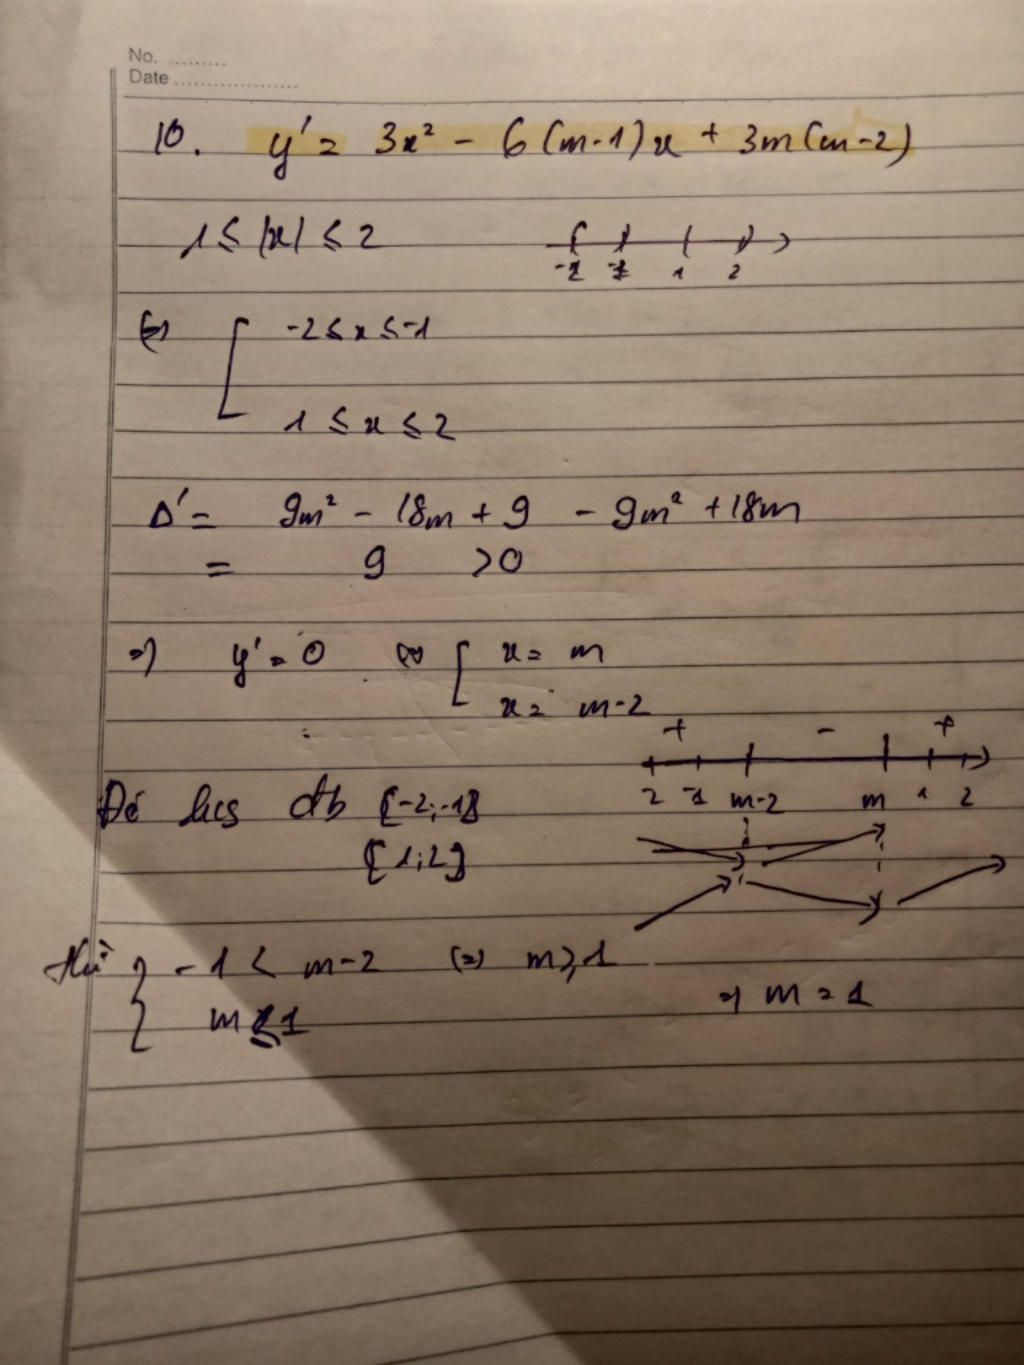 No. .........
Date ...................
10. y' = 3x² - 6(m-1)x + 3m(m-2)
1 ≤ |x| ≤ 2
-2 -1 1 2
(=) [ -2 ≤ x ≤ -1
1 ≤ x ≤ 2
Δ' = 9m² - 18m + 9 - 9m² + 18m
= 9 > 0
=) y' = 0 (=) [ x = m
x = m-2
+ - +
2 -1 m-2 m 1 2
Để hs đb [-2;-1]
[1;2]
thì { -1 < m-2 (=) m ≥ 1
m ≤ 1
=) m = 1